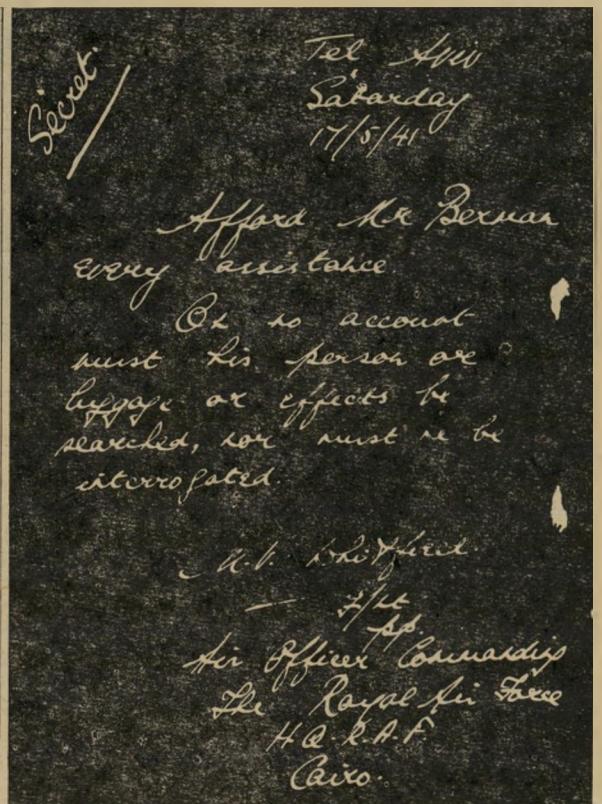 Secret.
Tel Aviv
Saturday
17/5/41
Afford Mr Berman
every assistance.
On no account
must his person or
luggage or effects be
searched, nor must he be
interrogated.
F/Lt
pp.
Air Officer Commanding
The Royal Air Force
H Q R.A.F
Cairo.